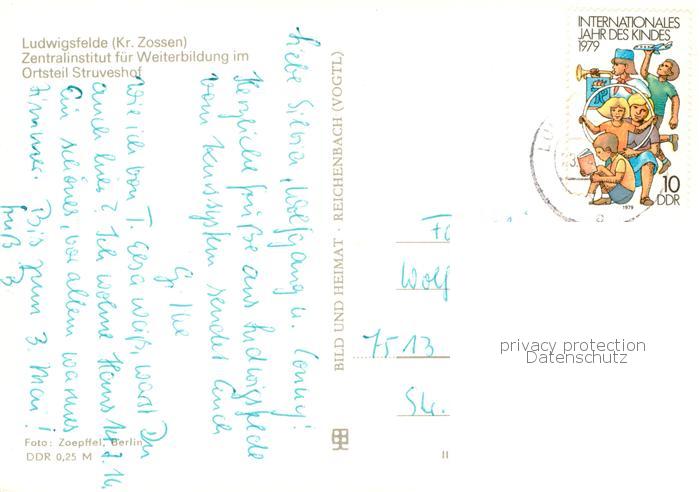 Ludwigsfelde (Kr. Zossen)
Zentralinstitut für Weiterbildung im
Ortsteil Struveshof
Liebe Silvia, Wolfgang u. Conny!
Herzliche Grüße aus Ludwigsfelde
vom Kurssystem sendet Euch
Wie ich von T. weiß, warst Du
auch hier? Ich wohne Haus
ein schönes, vor allem warmes
Zimmer. Bis zum 3. Mai!
Gruß
Foto: Zoepffel, Berlin
DDR 0,25 M
BILD UND HEIMAT · REICHENBACH (VOGTL)
II
INTERNATIONALES
JAHR DES KINDES
1979
10
DDR
1979
Wolf
7513
privacy protection
Datenschutz